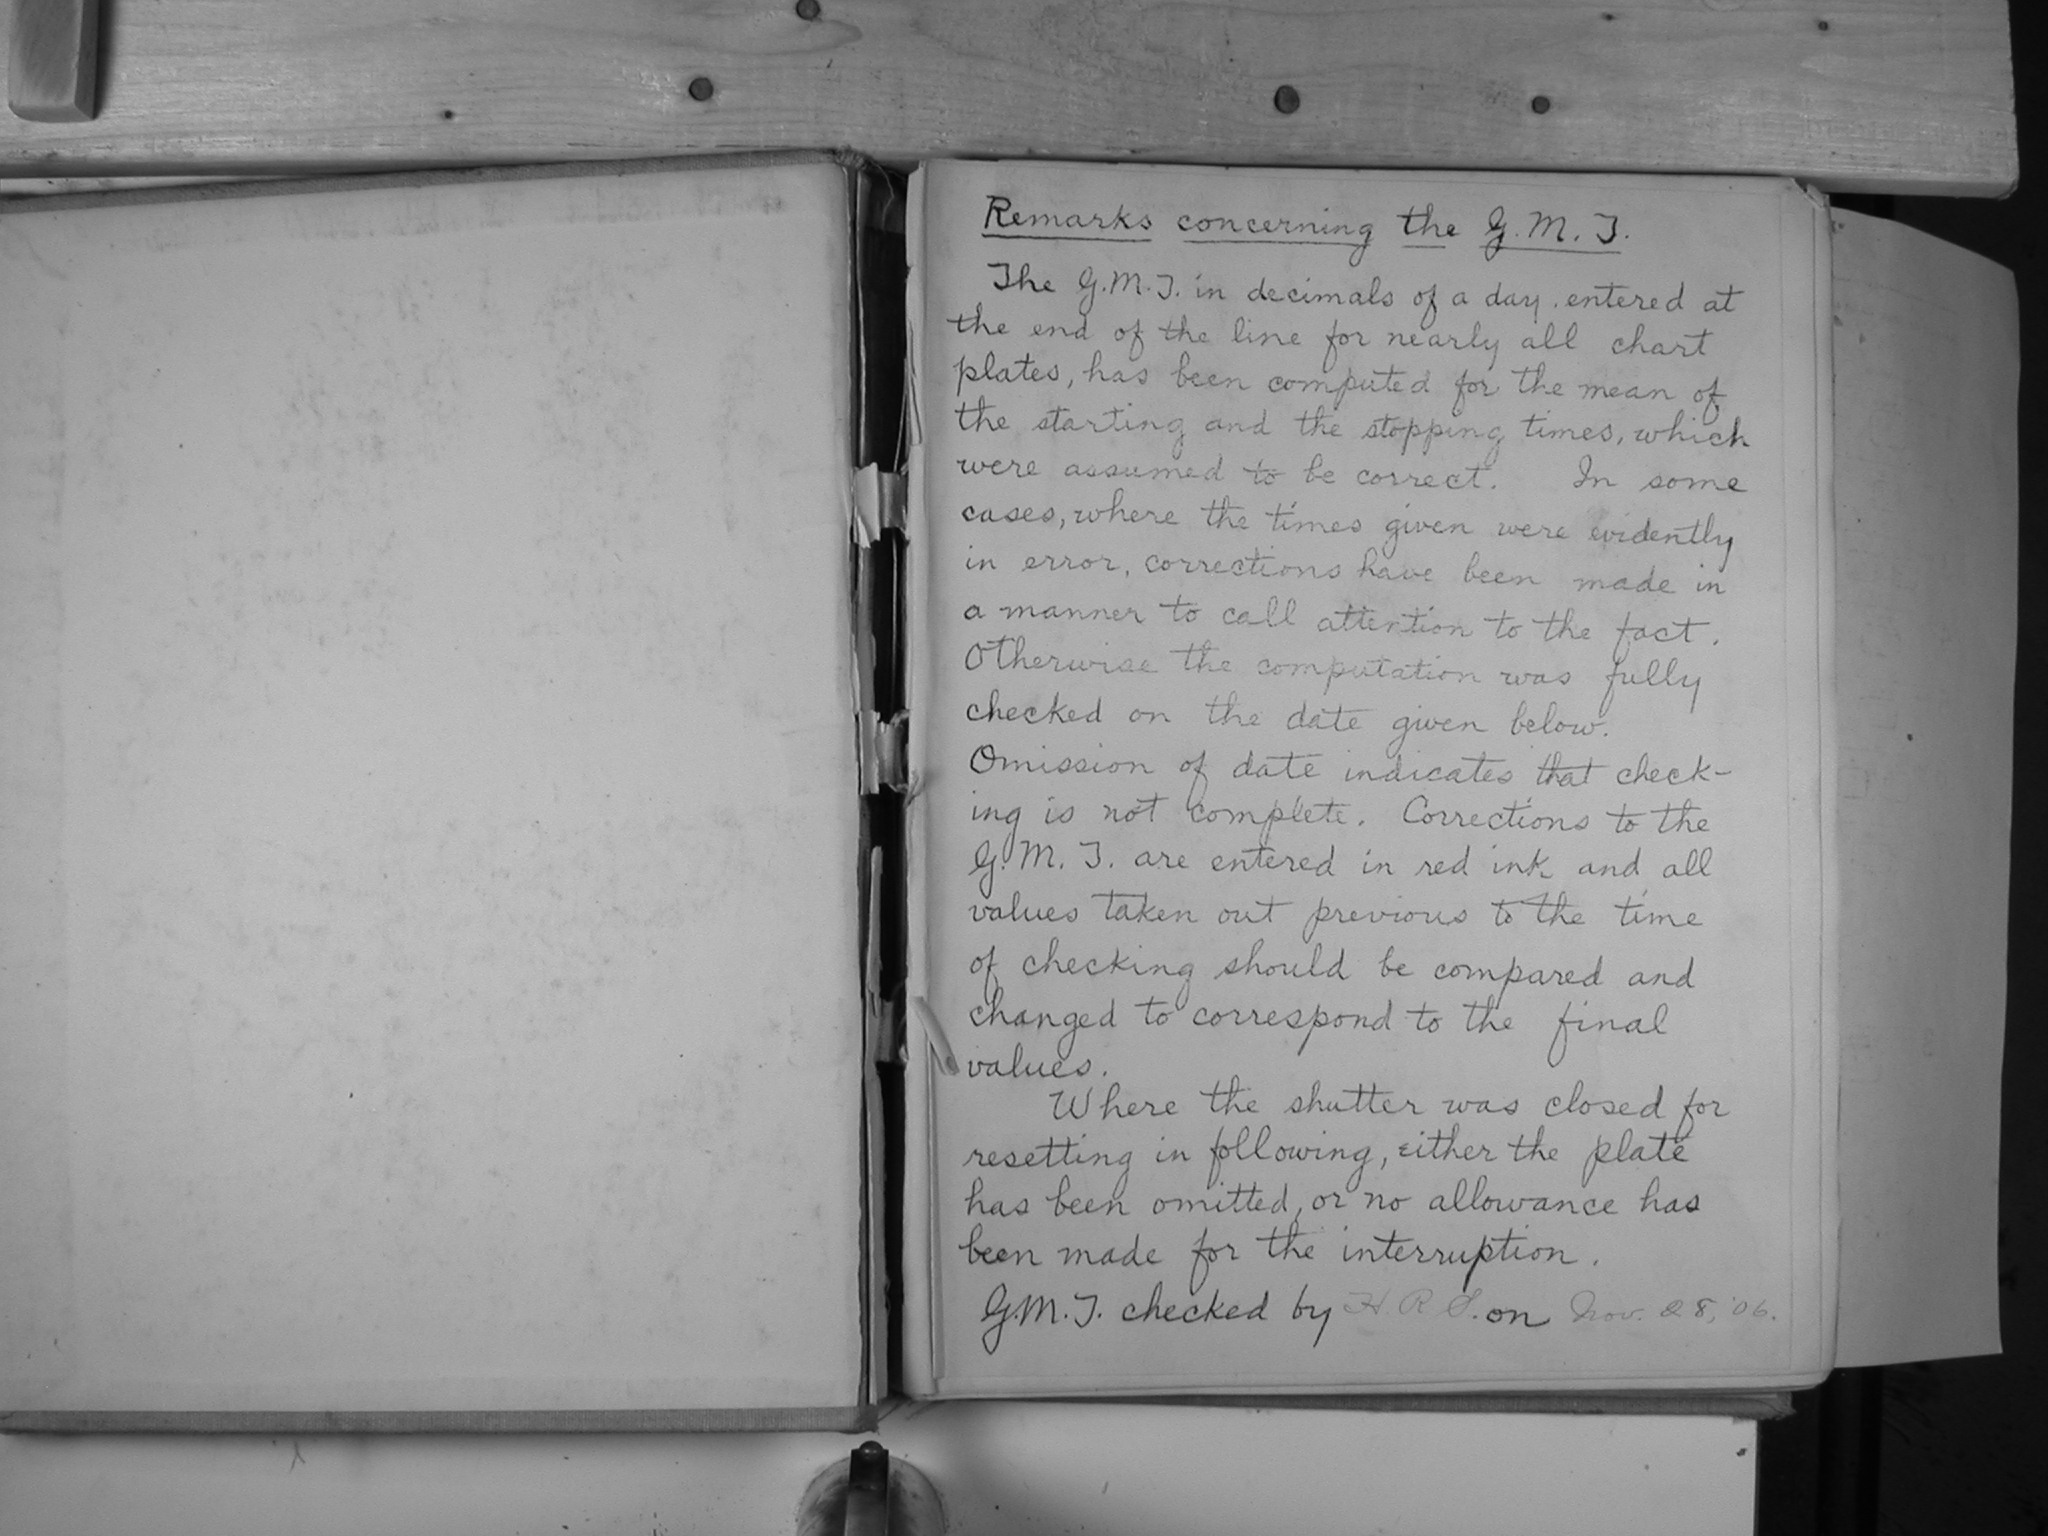 Remarks concerning the G.M.T.
The G.M.T. in decimals of a day, entered at
the end of the line for nearly all chart
plates, has been computed for the mean of
the starting and the stopping times, which
were assumed to be correct. In some
cases, where the times given were evidently
in error, corrections have been made in
a manner to call attention to the fact.
Otherwise the computation was fully
checked on the date given below.
Omission of date indicates that check-
ing is not complete. Corrections to the
G.M.T. are entered in red ink and all
values taken out previous to the time
of checking should be compared and
changed to correspond to the final
values.
Where the shutter was closed for
resetting in following, either the plate
has been omitted, or no allowance has
been made for the interruption.
G.M.T. checked by H. R. S. on Nov. 28, '06.